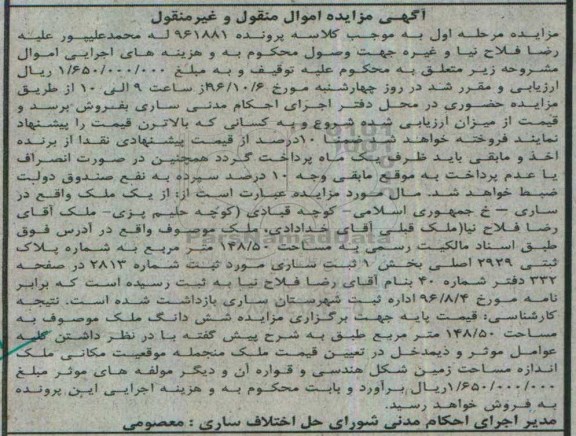 آگهی مزایده اموال منقول و غیرمنقول
مزایده مرحله اول به موجب کلاسه پرونده ۹۶۱۸۸۱ له محمدعلیپور علیه
رضا فلاح نیا و غیره جهت وصول محکوم به و هزینه های اجرایی اموال
مشروحه زیر متعلق به محکوم علیه توقیف و به مبلغ ۱/۶۵۰/۰۰۰/۰۰۰ ریال
ارزیابی و مقرر شد در روز چهارشنبه مورخ ۹۶/۱۰/۶از ساعت ۹ الی ۱۰ از طریق
مزایده حضوری در محل دفتر اجرای احکام مدنی ساری بفروش برسد و
قیمت از میزان ارزیابی شده شروع و به کسانی که بالاترن قیمت را پیشنهاد
نمایند فروخته خواهد شد. ۱۰درصد از قیمت پیشنهادی نقدا از برنده
اخذ و مابقی باید ظرف یک ماه پرداخت گردد همچنین در صورت انصراف
یا عدم پرداخت به موقع مابقی وجه ۱۰ درصد سپرده به نفع صندوق دولت
ضبط خواهد شد. مال مورد مزایده عبارت است از: از یک ملک واقع در
ساری – خ جمهوری اسلامی- کوچه قبادی (کوچه حلیم پزی- ملک آقای
رضا فلاح نیا(ملک قبلی آقای خدادادی، ملک موصوف واقع در آدرس فوق
طبق اسناد مالکیت رسمی به مساحت ۱۴۸/۵۰ متر مربع به شماره پلاک
ثبتی ۲۹۲۹ اصلی بخش ۱ ثبت ساری مورد ثبت شماره ۲۸۱۳ در صفحه
۳۳۲ دفتر شماره ۴۰ بنام آقای رضا فلاح نیا به ثبت رسیده است که برابر
نامه مورخ ۹۶/۸/۴ اداره ثبت شهرستان ساری بازداشت شده است. نتیجه
کارشناسی: قیمت پایه جهت برگزاری مزایده شش دانگ ملک موصوف به
مساحت ۱۴۸/۵۰ متر مربع طبق به شرح پیش گفته با در نظر داشتن کلیه
عوامل موثر و ذیمدخل در تعیین قیمت ملک منجمله موقعیت مکانی ملک
اندازه مساحت زمین شکل هندسی و قواره ان و دیگر مولفه های موثر مبلغ
۱/۶۵۰/۰۰۰/۰۰۰ریال برآورد و بابت محکوم به و هزینه اجرایی این پرونده
به فروش خواهد رسید.
مدیر اجرای احکام مدنی شورای حل اختلاف ساری : معصومی